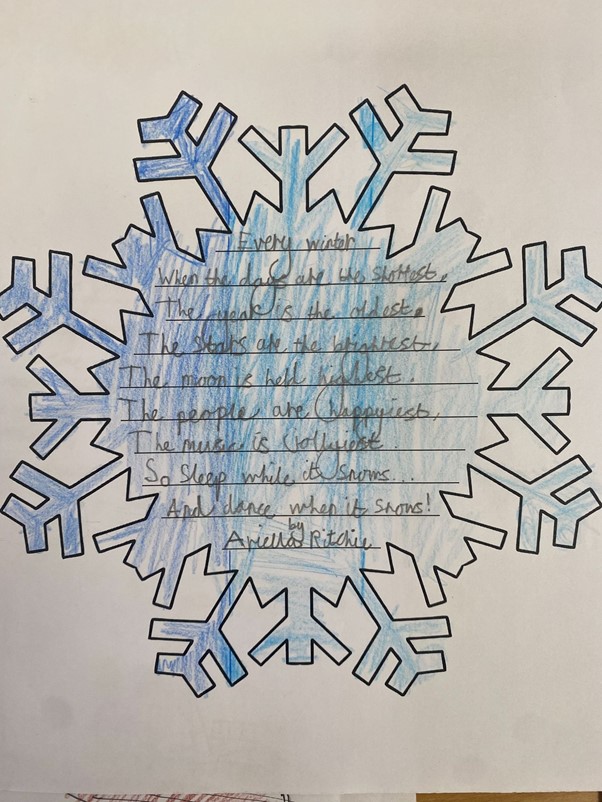 Every winter
When the days are the shortest,
The year is the oldest,
The stars are the brightest,
The moon is held highest.
The people are happyiest,
The music is Jollyiest.
So sleep while it snows...
And dance when it snows!
by
Ariella Ritchie